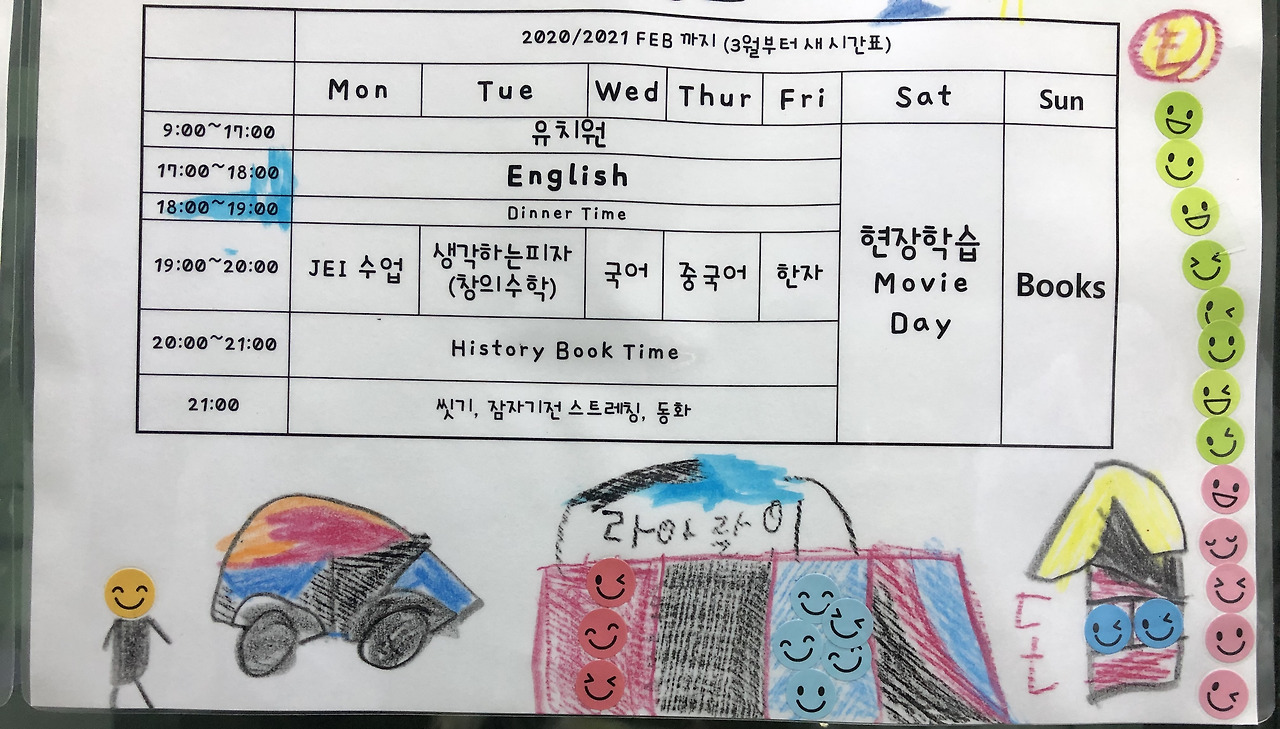 2020/2021 FEB 까지 (3월부터 새 시간표)
Mon Tue Wed Thur Fri Sat Sun
9:00~17:00 유치원
17:00~18:00 English
18:00~19:00 Dinner Time
19:00~20:00 JEI 수업 생각하는피자 (창의수학) 국어 중국어 한자
현장학습
Movie
Day
Books
20:00~21:00 History Book Time
21:00 씻기, 잠자기전 스트레칭, 동화